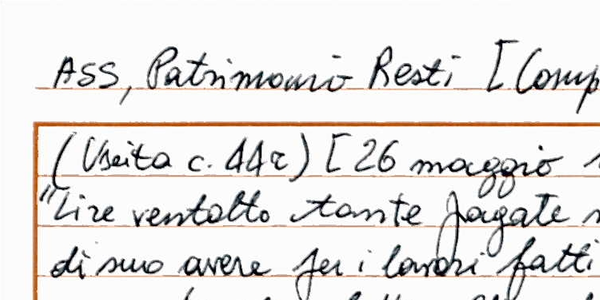 ASS, Patrimonio Resti [Comp
(Uscita c. 44r) [26 maggio
"Lire ventotto tante pagate
di suo avere per i lavori fatti